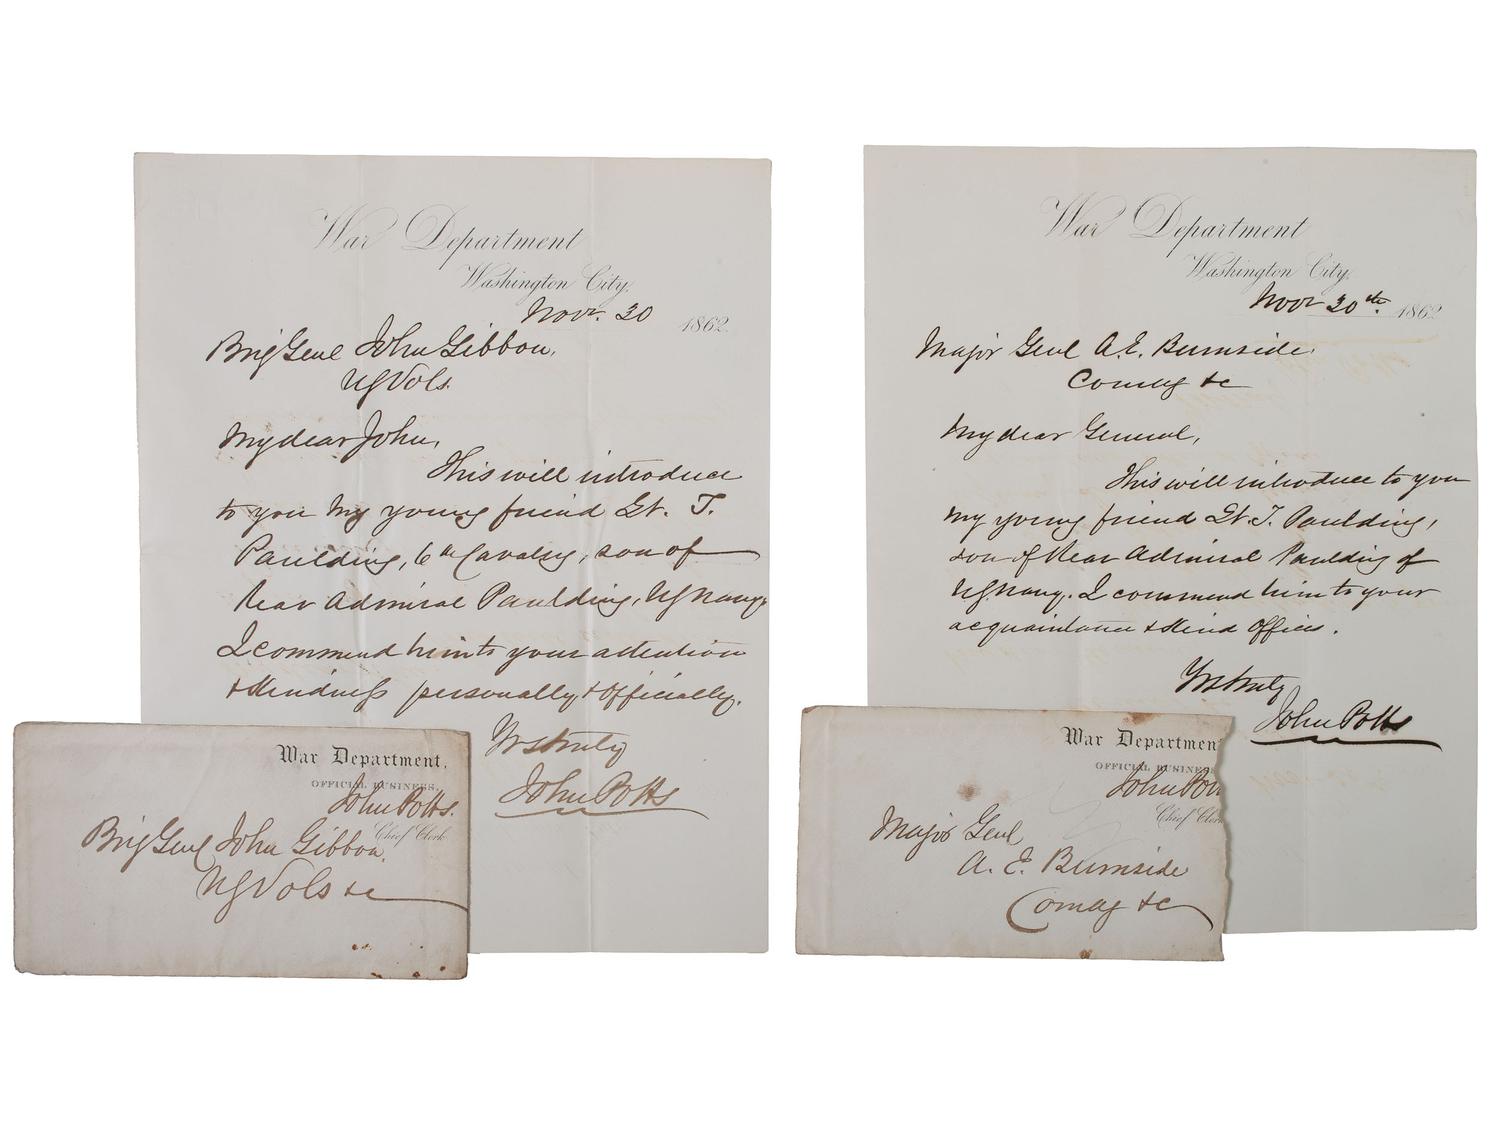 War Department
Washington City,
Novr. 30 1862.
Brig Genl John Gibbon,
US Vols.
My dear John,
This will introduce
to you my young friend Lt. T.
Paulding, 6th Cavalry, son of
Rear Admiral Paulding, US Navy
I commend him to your attention
& kindness personally & officially.
Yrs truly
John Potts
War Department,
OFFICIAL BUSINESS.
John Potts.
Chief Clerk
Brig Genl John Gibbon,
US Vols &c
War Department
Washington City,
Novr 30th. 1862
Major Genl A. E. Burnside
Comdg &c
My dear General,
This will introduce to you
my young friend Lt. T. Paulding,
son of Rear Admiral Paulding of
US Navy. I commend him to your
acquaintance & kind offices.
Yrs truly
John Potts
War Departmen
OFFICIAL BUSINESS
John Pot
Chief Clerk
Major Genl
A. E. Burnside
Comdg &c